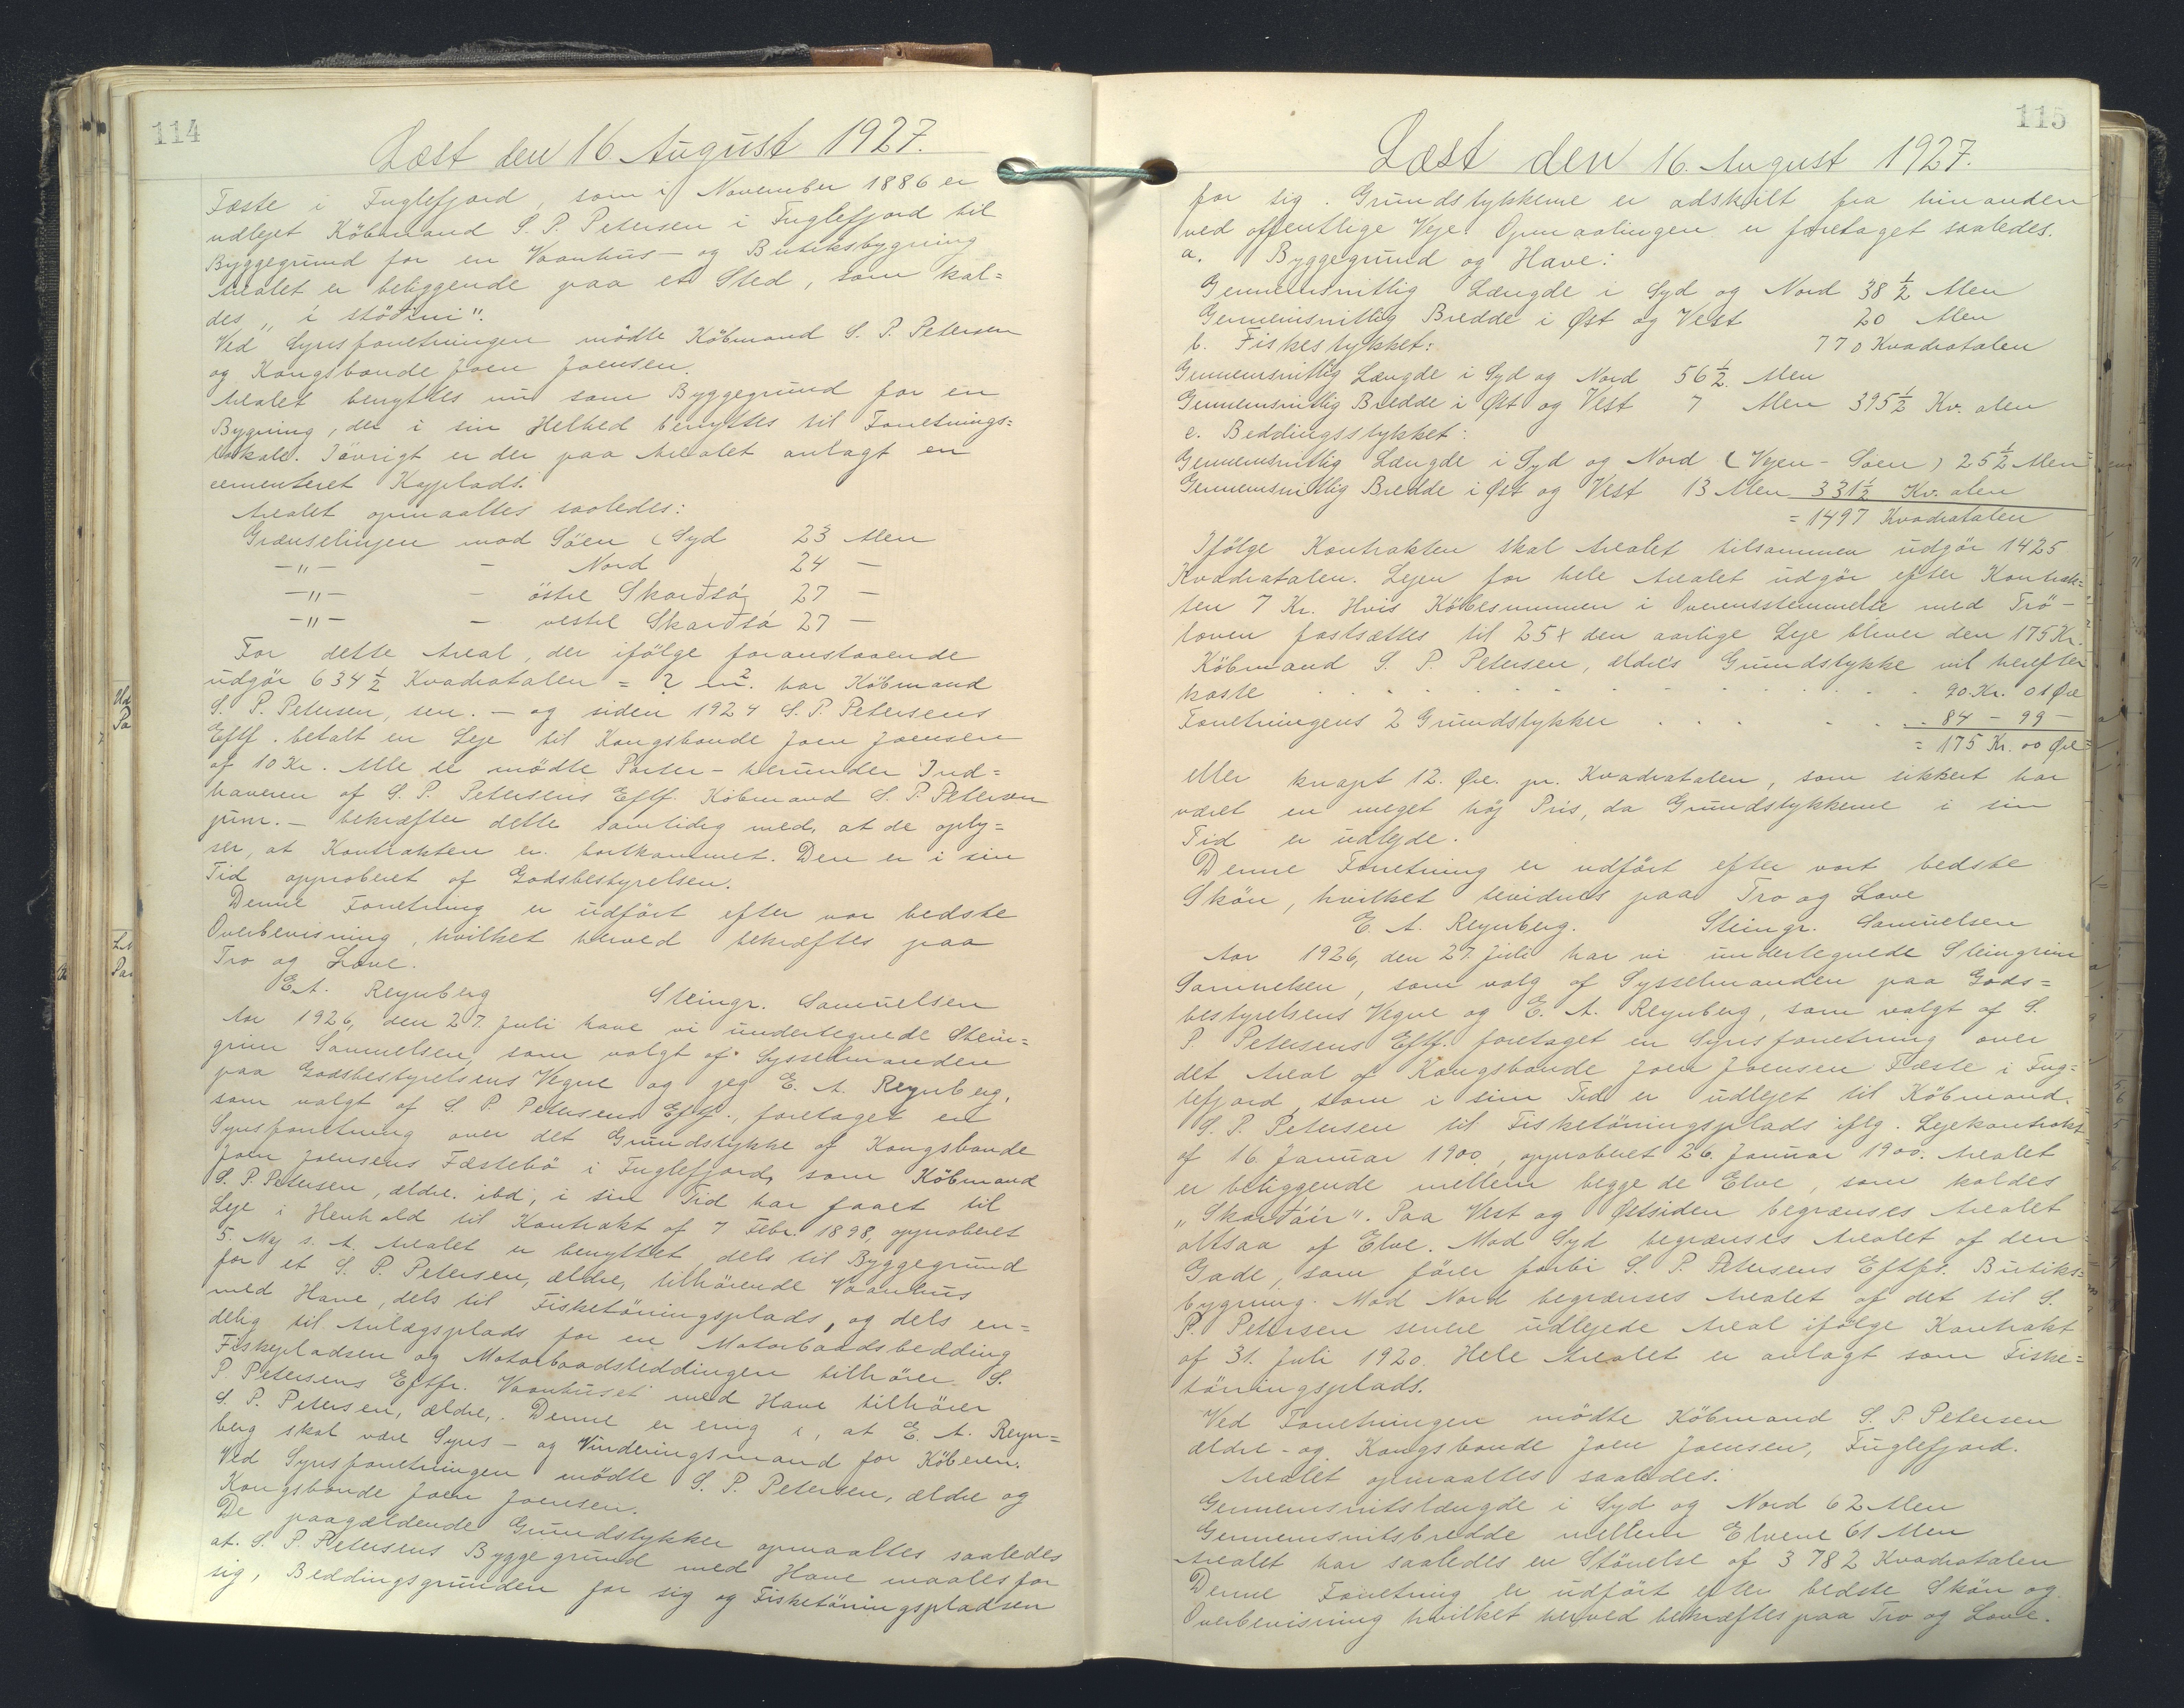 114
Læst den 16 August 1927.
Fæste i Fuglefjord, som i November 1886 er
udlejet Købmand S. P. Petersen i Fuglefjord til
Byggegrund for en Vaanhus- og Butiksbygning
Arealet er beliggende paa et Sted, som kal=
des „i støðini".
Ved Synsforretningen mødte Købmand S. P. Petersen
og Kongsbonde Joen Joensen.
Arealet benyttes nu som Byggegrund for en
Bygning, der i sin Helhed benyttes til Forretnings=
lokale. Iøvrigt er der paa Arealet anlagt en
cementeret Kajplads.
Arealet opmaaltes saaledes:
Grænselinjen mod Søen (Syd 23 Alen
-"- - Nord 24 -
-"- - østre Skarðsá 27 -
-"- - vestre Skarðsá 27 -
For dette Areal, der ifølge foranstaaende
udgør 634 ½ Kvadratalen = ? m². har Købmand
S. P. Petersen, sen. - og siden 1924 S. P. Petersens
Eftf. betalt en Leje til Kongsbonde Joen Joensen
af 10 Kr. Alle de mødte Parter - herunder Ind=
haveren af S. P. Petersens Eftf. Købmand S. P. Petersen
jun. - bekræfter dette samtidig med, at de oply=
ser, at Kontrakten er bortkommet. Den er i sin
Tid approberet af Godsbestyrelsen.
Denne Forretning er udført efter vor bedste
Overbevisning, hvilket herved bekræftes paa
Tro og Love.
E. A. Reynberg Steingr. Samuelsen
Aar 1926, den 27. Juli have vi undertegnede Stein=
grim Samuelsen, som valgt af Sysselmanden
paa Godsbestyrelsens Vegne og jeg E. A. Reynberg,
som valgt af S. P. Petersens Eftf., foretaget en
Synsforretning over det Grundstykke af Kongsbonde
Joen Joensens Fæstebø i Fuglefjord, som Købmand
S. P. Petersen, ældre. ibd, i sin Tid har faaet til
Leje i Henhold til Kontrakt af 7 Febr. 1898, approberet
5. Maj s. A. Arealet er benyttet dels til Byggegrund
for et S. P. Petersen, ældre, tilhørende Vaanhus
med Have, dels til Fisketørringsplads, og dels en=
delig til Anlægsplads for en Motorbaadsbedding
Fiskepladsen og Motorbaadsbeddingen tilhører S.
P. Petersens Eftfr. Vaanhuset med Have tilhører
S. P. Petersen, ældre,. Denne er enig i, at E. A. Reyn=
berg skal være Syns- og Vurderingsmand for Køberen.
Ved Synsforretningen mødte S. P. Petersen, ældre og
Kongsbonde Joen Joensen.
De paagældende Grundstykker opmaaltes saaledes
at S. P. Petersens Byggegrund med Have maales for
sig, Beddingsgrunden for sig og Fisketørringspladsen
115
Læst den 16. August 1927.
for sig. Grundstykkerne er adskilt fra hinanden
ved offentlige Veje. Opmaalingen er foretaget saaledes.
a. Byggegrund og Have:
Gennemsnitlig Længde i Syd og Nord 38 ½ Alen
Gennemsnitlig Bredde i Øst og Vest 20 Alen
b. Fiskestykket: 770 Kvadratalen
Gennemsnitlig Længde i Syd og Nord 56 ½ Alen
Gennemsnitlig Bredde i Øst og Vest 7 Alen 395 ½ Kv. alen
c. Beddingsstykket:
Gennemsnitlig Længde i Syd og Nord (Vejen - Søen) 25 ½ Alen
Gennemsnitlig Bredde i Øst og Vest 13 Alen 331 ½ Kv. alen
= 1497 Kvadratalen
Ifølge Kontrakten skal Arealet tilsammen udgør 1425
Kvadratalen. Lejen for hele Arealet udgør efter Kontrak=
ten 7 Kr. Hvis Købesummen i Overensstemmelse med Trø-
loven fastsættes til 25 x den aarlige Leje bliver den 175 Kr.
Købmand S. P. Petersen, ældre's Grundstykke vil herefter
koste . . . 90 Kr. 01 Øre
Forretningens 2 Grundstykker . . . 84 - 99 -
= 175 Kr. 00 Øre
eller knapt 12. Øre. pr. Kvadratalen, som sikkert har
været en meget høj Pris, da Grundstykkerne i sin
Tid er udlejde.
Denne Forretning er udført efter vort bedste
Skøn, hvilket bevidnes paa Tro og Love
E. A. Reynberg. Steingr. Samuelsen
Aar 1926, den 27. Juli har vi undertegnede Steingrim
Samuelsen, som valg af Sysselmanden paa Gods=
bestyrelsens Vegne og E. A. Reynberg, som valgt af S.
P. Petersens Eftf. foretaget en Synsforretning over
det Areal af Kongsbonde Joen Joensen Fæste i Fug=
lefjord, som i sin Tid er udlejet til Købmand.
S. P. Petersen til Fisketørringsplads iflg. Lejekontrakt
af 16. Januar 1900, approberet 26. Januar 1900. Arealet
er beliggende mellem begge de Elve, som kaldes
„Skarðáir". Paa Vest og Østsiden begrænses Arealet
altsaa af Elve. Mod Syd begrænses Arealet af den
Gade, som fører forbi S. P. Petersens Eftfs. Butiks=
bygning. Mod Nord begrænses Arealet af det til S.
P. Petersen senere udlejede Areal ifølge Kontrakt
af 31. Juli 1920. Hele Arealet er anlagt som Fiske=
tørringsplads.
Ved Forretningen mødte Købmand S. P. Petersen
ældre - og Kongsbonde Joen Joensen, Fuglefjord.
Arealet opmaaltes saaledes:
Gennemsnitslængde i Syd og Nord 62 Alen
Gennemsnitsbredde mellem Elvene 61 Alen
Arealet har saaledes en Størrelse af 3 782 Kvadratalen
Denne Forretning er udført efter bedste Skøn og
Overbevisning hvilket herved bekræftes paa Tro og Love.